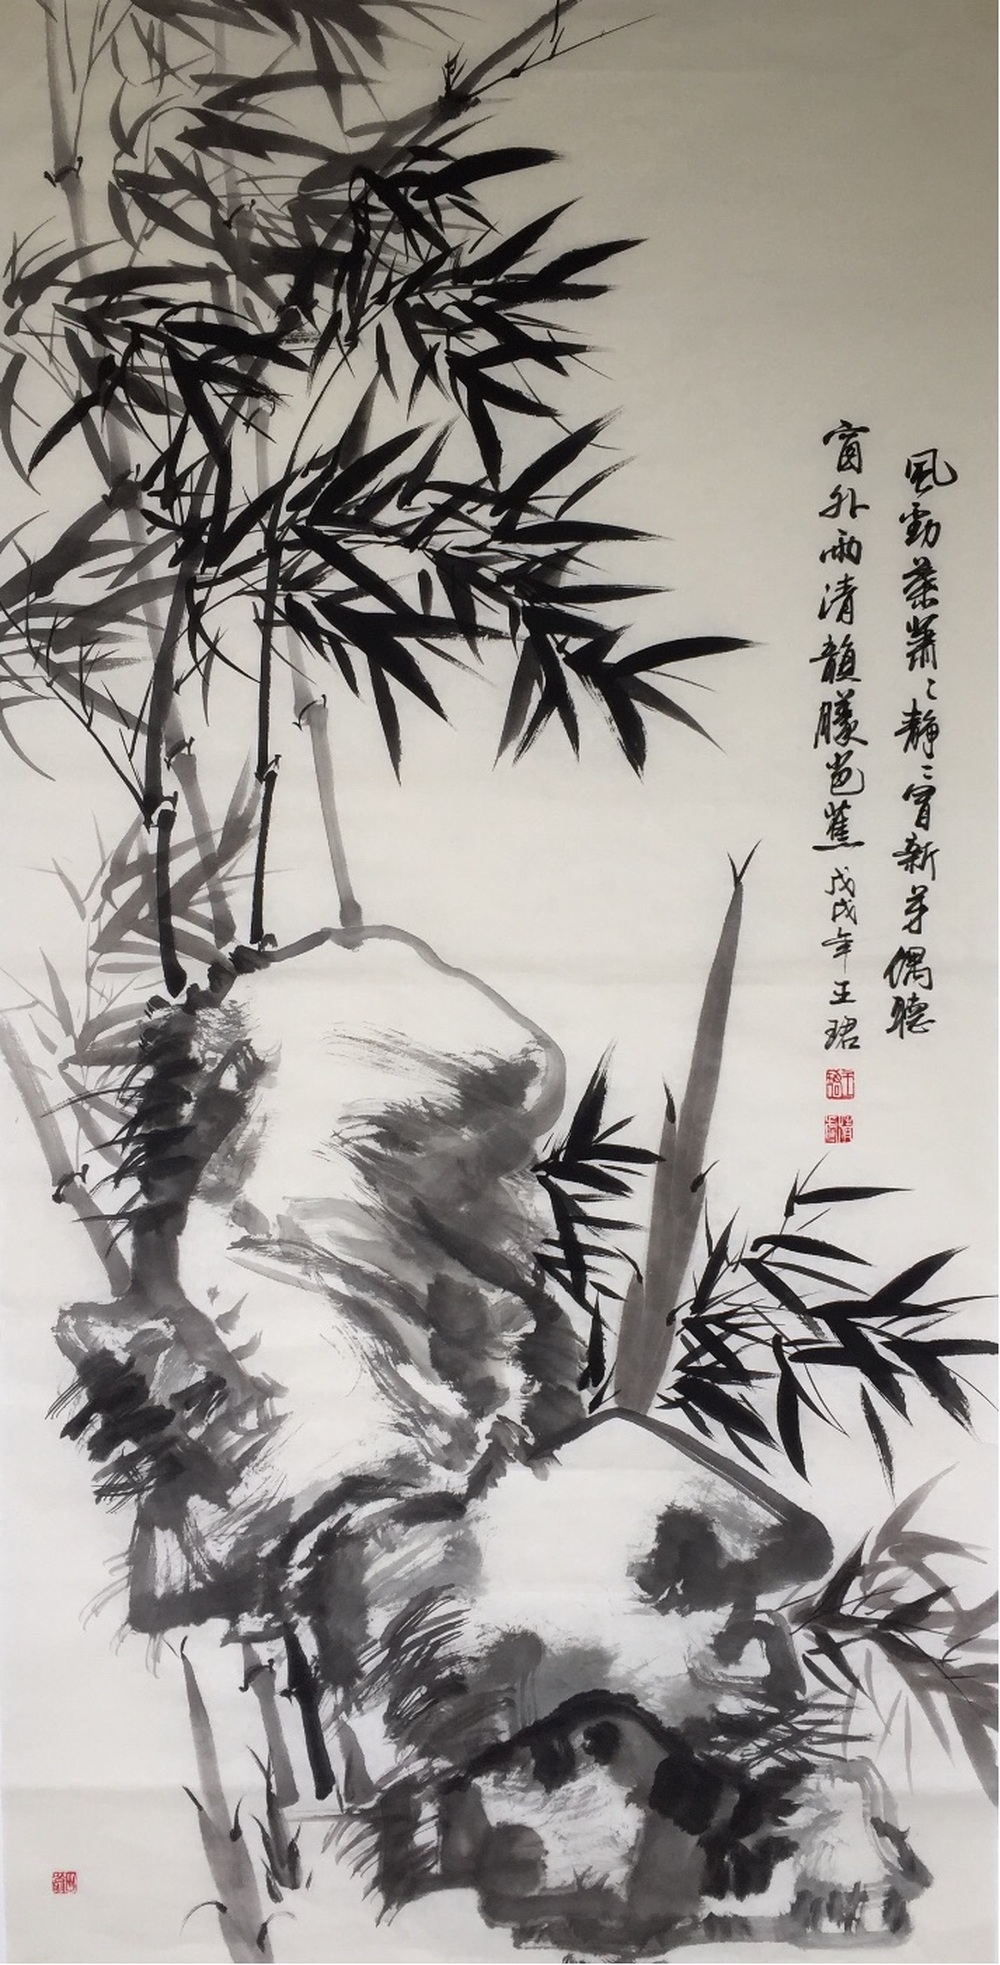 風動葉蕭〻静〻冒新芽偶聽
窗外雨清韻勝芭蕉戊戌年王珺